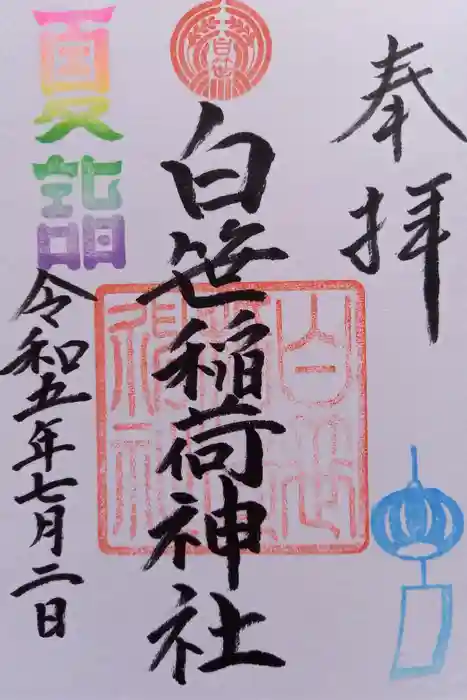 奉拝
白笹
白笹稲荷神社
白笹稲荷神社
夏詣
令和五年七月二日